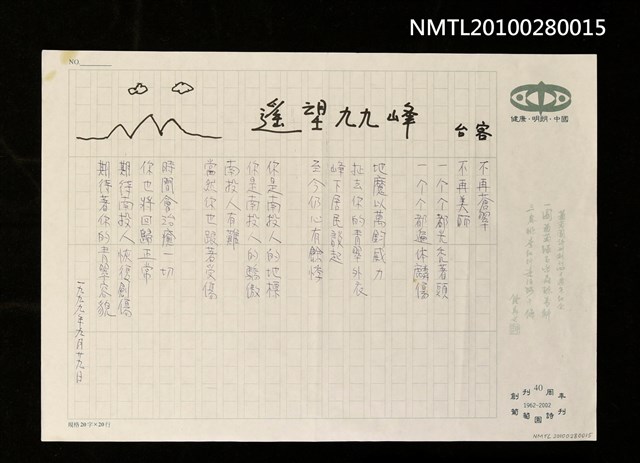 NMTL20100280015
NO.
遙望九九峰
台客
不再蒼翠
不再美麗
一個個都光禿著頭
一個個都遍体鱗傷
地魔以萬鈞威力
扯去你的青翠外衣
峰下居民談起
至今仍心有餘悸
你是南投人的地標
你是南投人的驕傲
南投人有難
當然你也跟著受傷
時間會治癒一切
你也將回歸正常
期待南投人恢復創傷
期待著你的青翠容貌
一九九九年九月廿九日
健康·明朗·中國
創刊40周年
1962-2002
葡萄園詩刊
規格20字×20行
NMTL20100280015